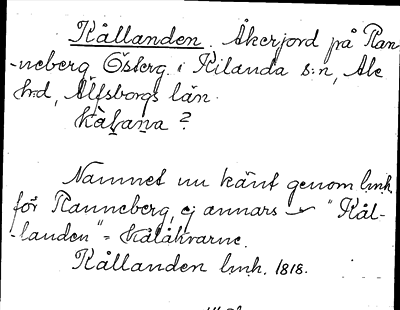 Kållanden. Åkerjord på Ran-
-neberg Österg. i Kilanda s:n, Ale
hd, Älfsborgs län.
Kålana ?
Namnet nu känt genom lmh.
för Ranneberg, ej annars "Kål-
-landen" = Kålåkrarne.
Kållanden lmh. 1818.